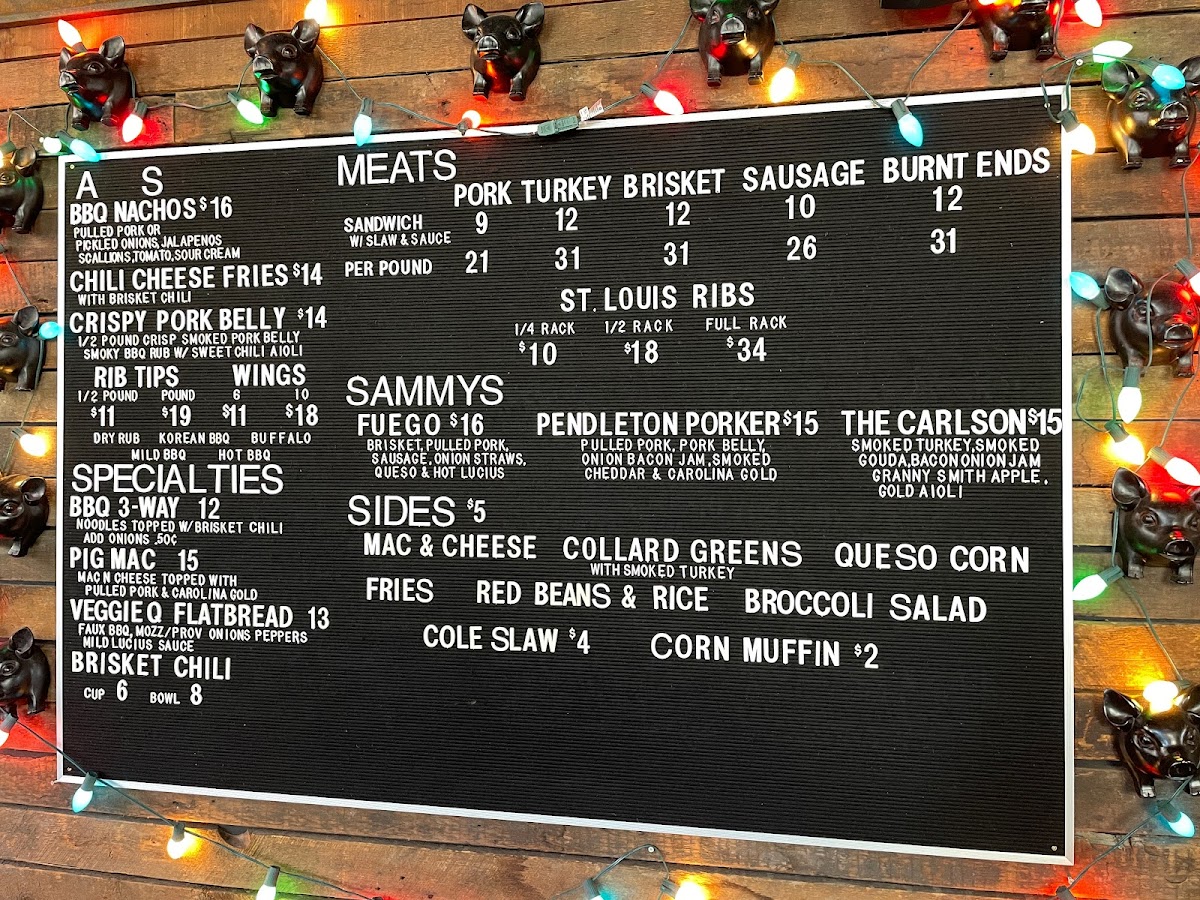 A S
BBQ NACHOS $16
PULLED PORK OR
PICKLED ONIONS, JALAPENOS
SCALLIONS, TOMATO, SOUR CREAM
CHILI CHEESE FRIES $14
WITH BRISKET CHILI
CRISPY PORK BELLY $14
1/2 POUND CRISP SMOKED PORK BELLY
SMOKY BBQ RUB W/ SWEET CHILI AIOLI
RIB TIPS WINGS
1/2 POUND POUND 6 10
$11 $19 $11 $18
DRY RUB KOREAN BBQ BUFFALO
MILD BBQ HOT BBQ
SPECIALTIES
BBQ 3-WAY 12
NOODLES TOPPED W/ BRISKET CHILI
ADD ONIONS .50¢
PIG MAC 15
MAC N CHEESE TOPPED WITH
PULLED PORK & CAROLINA GOLD
VEGGIE Q FLATBREAD 13
FAUX BBQ, MOZZ/PROV ONIONS PEPPERS
MILD LUCIUS SAUCE
BRISKET CHILI
CUP 6 BOWL 8
MEATS
PORK TURKEY BRISKET SAUSAGE BURNT ENDS
SANDWICH 9 12 12 10 12
W/ SLAW & SAUCE
PER POUND 21 31 31 26 31
ST. LOUIS RIBS
1/4 RACK 1/2 RACK FULL RACK
$10 $18 $34
SAMMYS
FUEGO $16
BRISKET, PULLED PORK,
SAUSAGE, ONION STRAWS,
QUESO & HOT LUCIUS
PENDLETON PORKER $15
PULLED PORK, PORK BELLY,
ONION BACON JAM, SMOKED
CHEDDAR & CAROLINA GOLD
THE CARLSON $15
SMOKED TURKEY, SMOKED
GOUDA, BACON ONION JAM
GRANNY SMITH APPLE,
GOLD AIOLI
SIDES $5
MAC & CHEESE COLLARD GREENS QUESO CORN
WITH SMOKED TURKEY
FRIES RED BEANS & RICE BROCCOLI SALAD
COLE SLAW $4 CORN MUFFIN $2